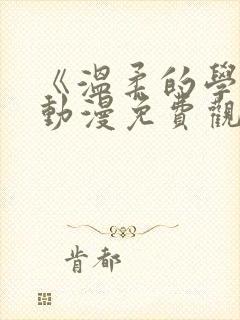 《溫柔的學
動漫免費觀
肯都